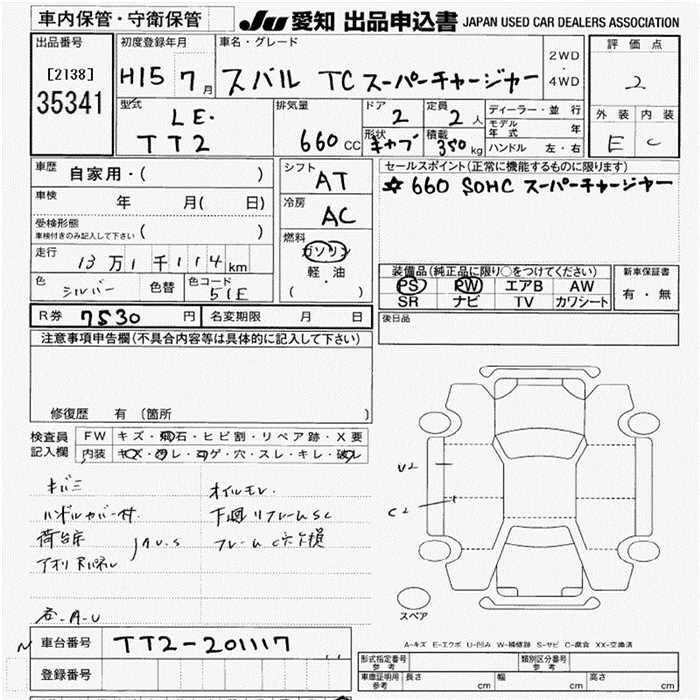 車内保管・守衛保管
JU 愛知 出品申込書 JAPAN USED CAR DEALERS ASSOCIATION
出品番号
[2138]
35341
初度登録年月
H15 7月
車名・グレード
スバル TC スーパーチャージャー
2WD
・
4WD
評価点
2
外装 内装
E C
型式
LE・
TT2
排気量
660 CC
ドア
2
形状
キャブ
定員
2人
積載
350kg
ディーラー・並行
モデル年式 年
ハンドル 左・右
車歴
自家用・( )
車検
年 月( 日)
受検形態
車検付きのみ記入して下さい( )
走行
13万1千114km
色
シルバー
色替
色コード
51E
シフト
AT
冷房
AC
燃料
ガソリン
軽・油
( )
セールスポイント(正常に機能するものに限ります)
☆ 660 SOHC スーパーチャージャー
装備品(純正品に限り○をつけてください)
PS PW エアB AW
SR ナビ TV カワシート
新車保証書
有・無
R券 7530 円
名変期限 月 日
後日品
注意事項申告欄(不具合内容等は具体的に記入して下さい)
修復歴 有 (箇所 )
検査員
記入欄
FW キズ・飛石・ヒビ割・リペア跡・X要
内装 キズ・ヨゴレ・コゲ・穴・スレ・キレ・破レ
キバミ
オイルモレ
ハンドルカバー付
下廻リフレームSC
荷台
AU.S
フレームC穴
アオリ
A-U
U2
C2
スペア
A-キズ E-エクボ U-凹み W-補修跡 S-サビ C-腐食 XX-交換済
車台番号 TT2-201117
登録番号
形式指定番号
参考
類別区分番号
参考
車庫証明用
参考
長さ cm 幅 cm 高さ cm